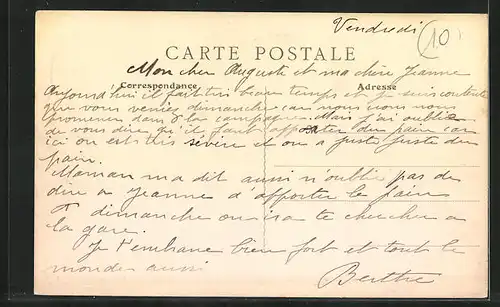 Vendredi
10
CARTE POSTALE
Mon cher Auguste et ma chère Jeanne
Correspondance Adresse
Aujourd'hui il fait un beau temps et je suis contente
que vous veniez dimanche car nous irons nous
promener dans la campagne. Mais j'ai oublié
de vous dire qu'il faut apporter du pain car
ici on est très sévère et on a juste juste du
pain.
Maman ma dit aussi n'oublie pas de
dire a Jeanne d'apporter le pain
A dimanche on ira te chercher a
la gare.
Je t'embrasse bien fort et tout le
monde aussi
Berthe